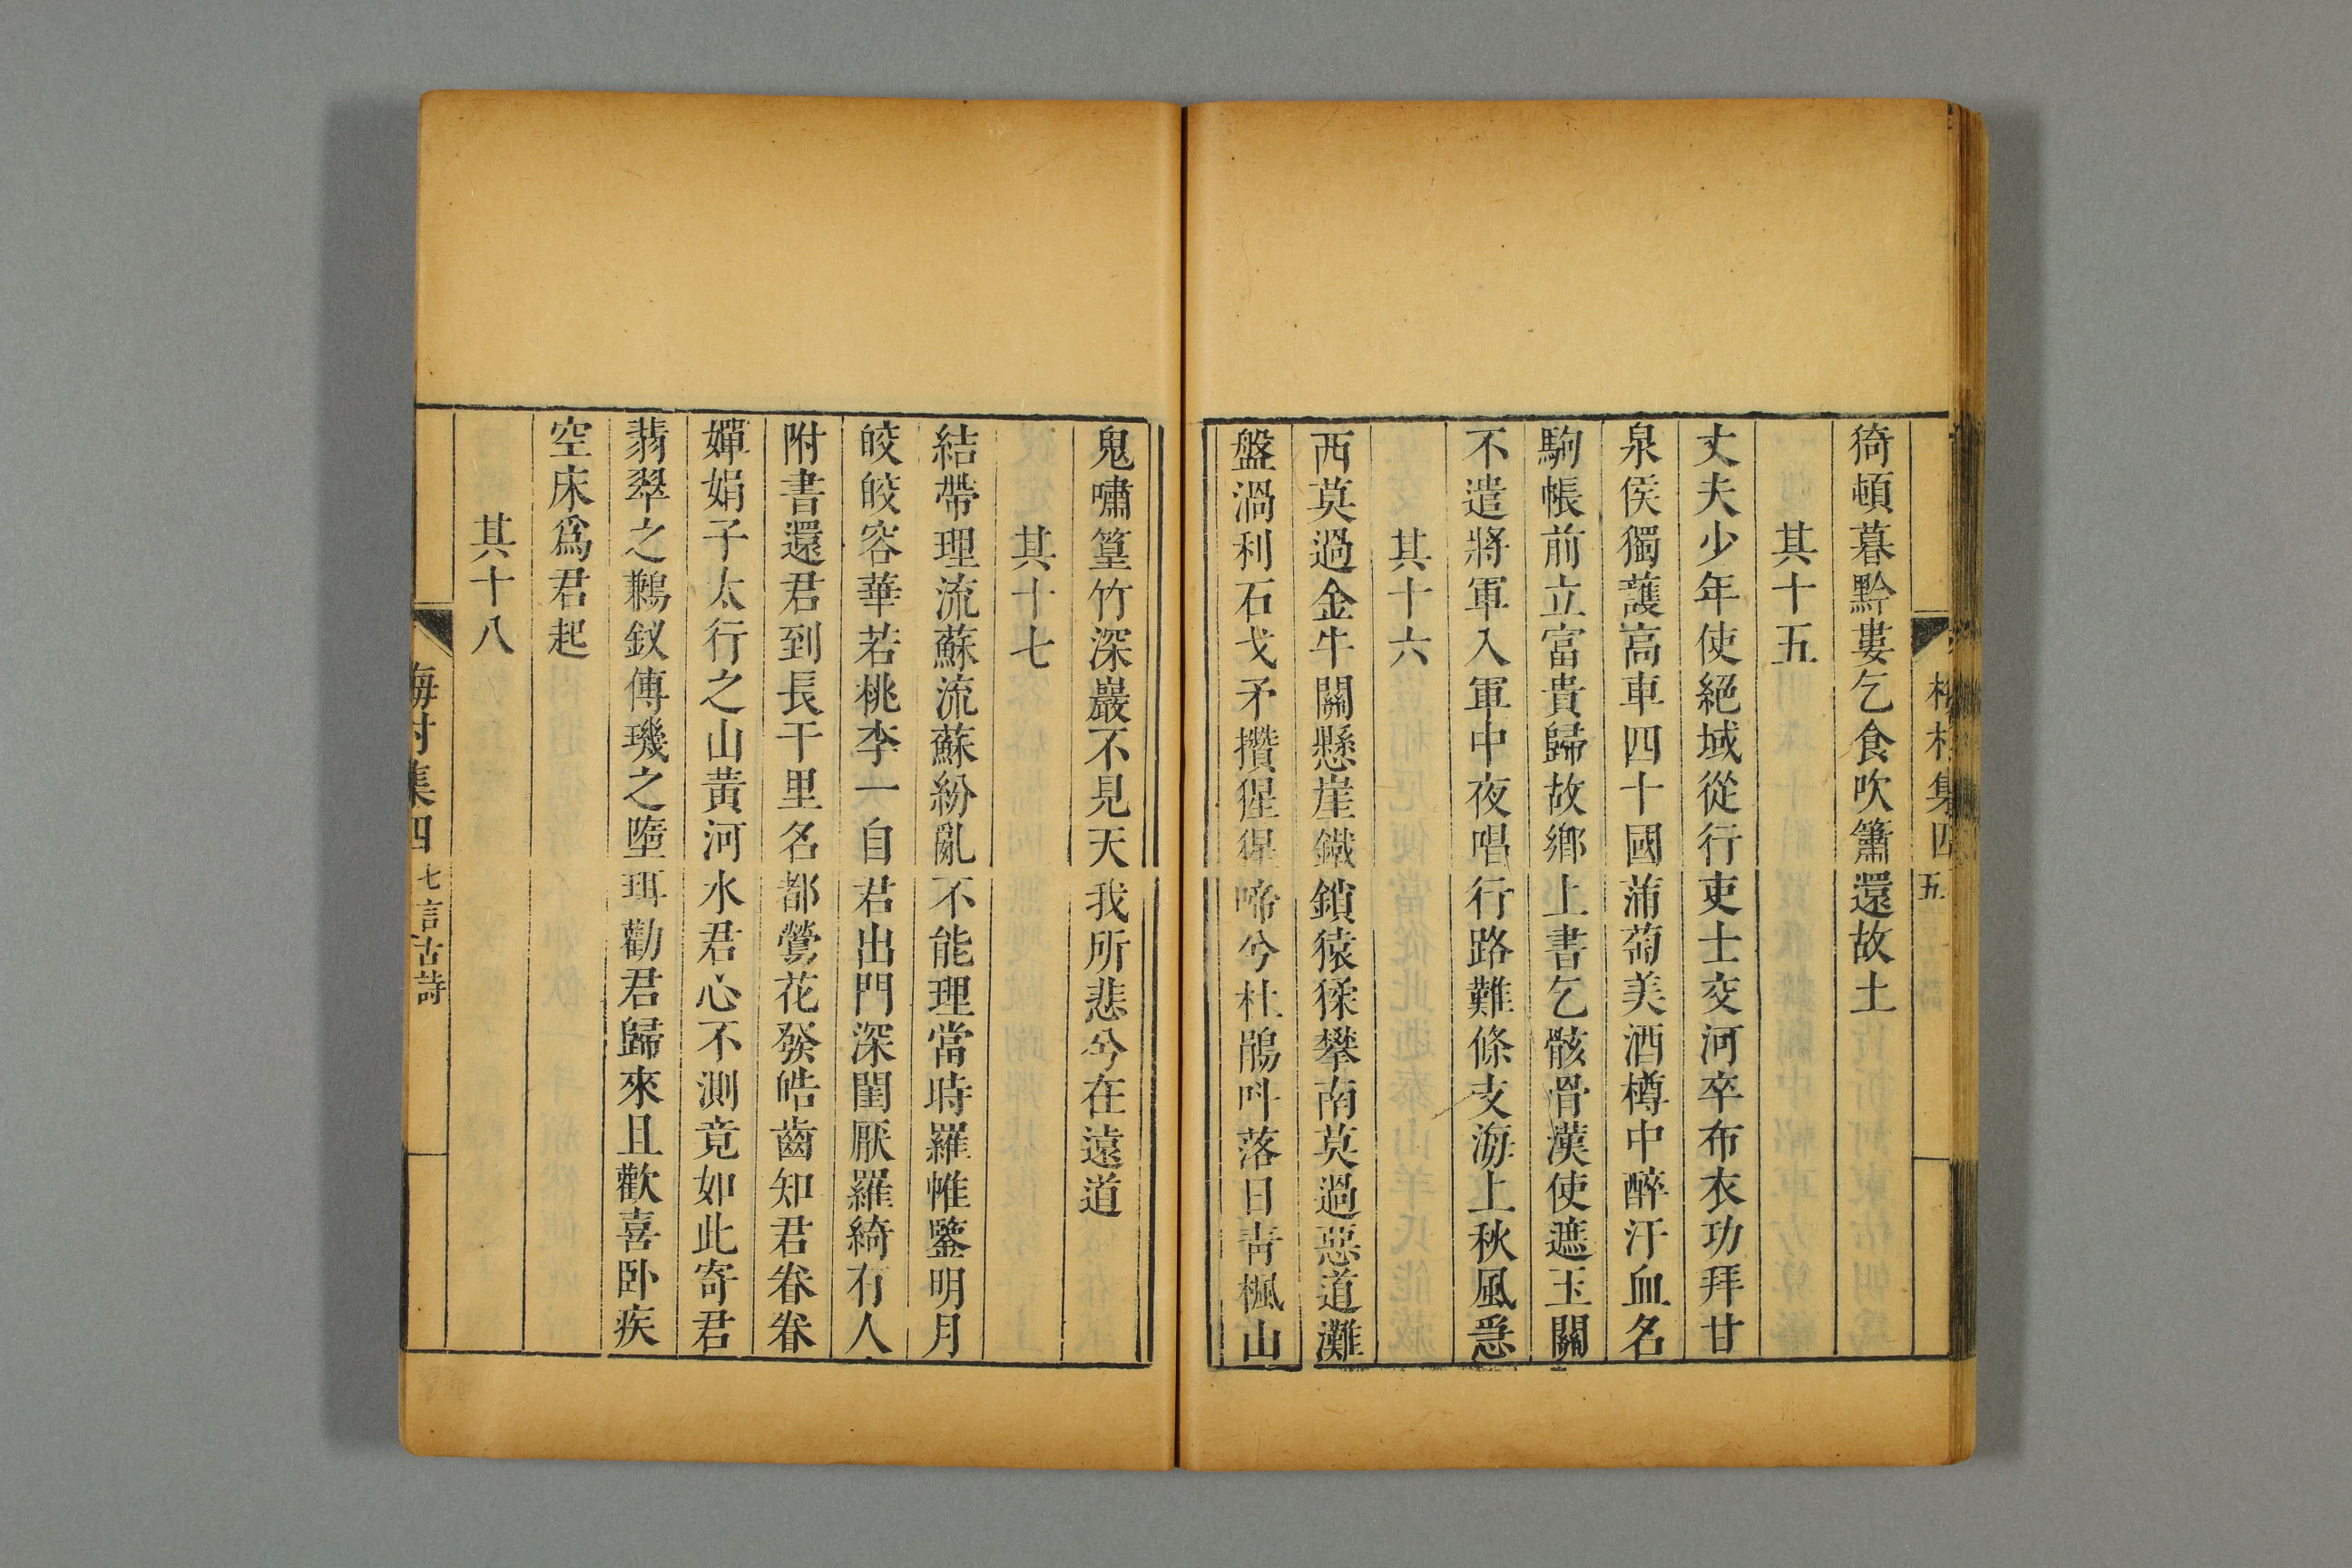 猗頓暮黔婁乞食吹簫還故土
其十五
丈夫少年使絕域從行吏士交河卒布衣功拜甘
泉侯獨護高車四十國蒲萄美酒樽中醉汗血名
駒帳前立富貴歸故鄉上書乞骸骨漢使遮玉關
不遣將軍入軍中夜唱行路難條支海上秋風急
其十六
西莫過金牛關懸崖鐵鎖猿猱攀南莫過惡道灘
盤渦利石戈矛攢猩猩啼兮杜鵑呌落日青楓山
鬼嘯篁竹深巖不見天我所悲兮在遠道
其十七
結帶理流蘇流蘇紛亂不能理當時羅帷鑒明月
皎皎容華若桃李一自君出門深閨厭羅綺有人
附書還君到長干里名都鶯花發皓齒知君眷眷
嬋娟子太行之山黃河水君心不測竟如此寄君
翡翠之鶼釵傅璣之墮珥勸君歸來且歡喜卧疾
空床爲君起
其十八
梅村集四 七言古詩